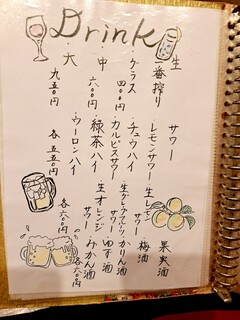 Drink
生
一番搾り
・グラス
四〇〇円
・中
六〇〇円
・大
九五〇円
サワー
・レモンサワー
・チュウハイ
・カルピスサワー
・緑茶ハイ
・ウーロンハイ
各五五〇円
・生レモンサワー
・生グレープフルーツサワー
・生オレンジサワー
各六〇円
果実酒
梅酒
かりん酒
ゆず酒
みかん酒
各六〇円